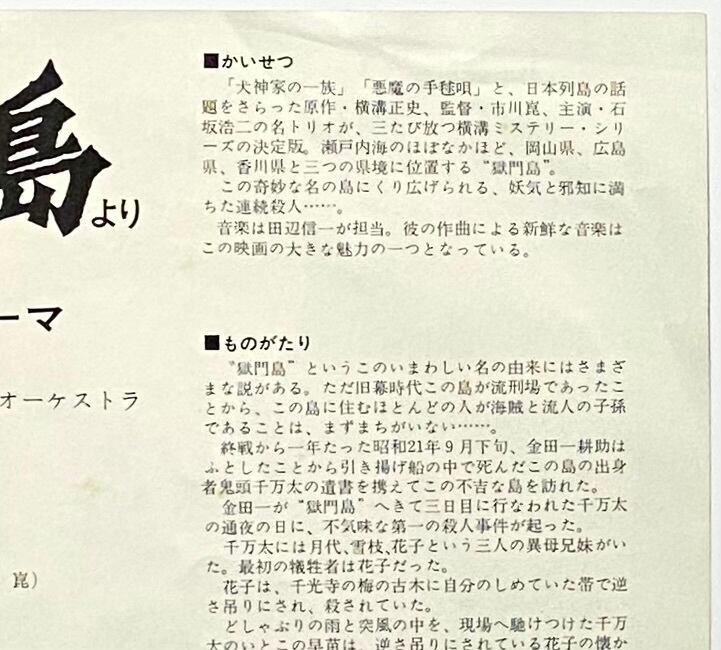 島より
ーマ
オーケストラ
崑)
■かいせつ
「犬神家の一族」「悪魔の手毬唄」と、日本列島の話
題をさらった原作・横溝正史、監督・市川崑、主演・石
坂浩二の名トリオが、三たび放つ横溝ミステリー・シリ
ーズの決定版。瀬戸内海のほぼなかほど、岡山県、広島
県、香川県と三つの県境に位置する“獄門島”。
この奇妙な名の島にくり広げられる、妖気と邪知に満
ちた連続殺人……。
音楽は田辺信一が担当。彼の作曲による新鮮な音楽は
この映画の大きな魅力の一つとなっている。
■ものがたり
“獄門島”というこのいまわしい名の由来にはさまざ
まな説がある。ただ旧幕時代この島が流刑場であったこ
とから、この島に住むほとんどの人が海賊と流人の子孫
であることは、まずまちがいない……。
終戦から一年たった昭和21年9月下旬、金田一耕助は
ふとしたことから引き揚げ船の中で死んだこの島の出身
者鬼頭千万太の遺書を携えてこの不吉な島を訪れた。
金田一が“獄門島”へきて三日目に行なわれた千万太
の通夜の日に、不気味な第一の殺人事件が起った。
千万太には月代、雪枝、花子という三人の異母兄妹がい
た。最初の犠牲者は花子だった。
花子は、千光寺の梅の古木に自分のしめていた帯で逆
さ吊りにされ、殺されていた。
どしゃぶりの雨と突風の中を、現場へ馳けつけた千万
太のいとこの早苗は、逆さ吊りにされている花子の懐か